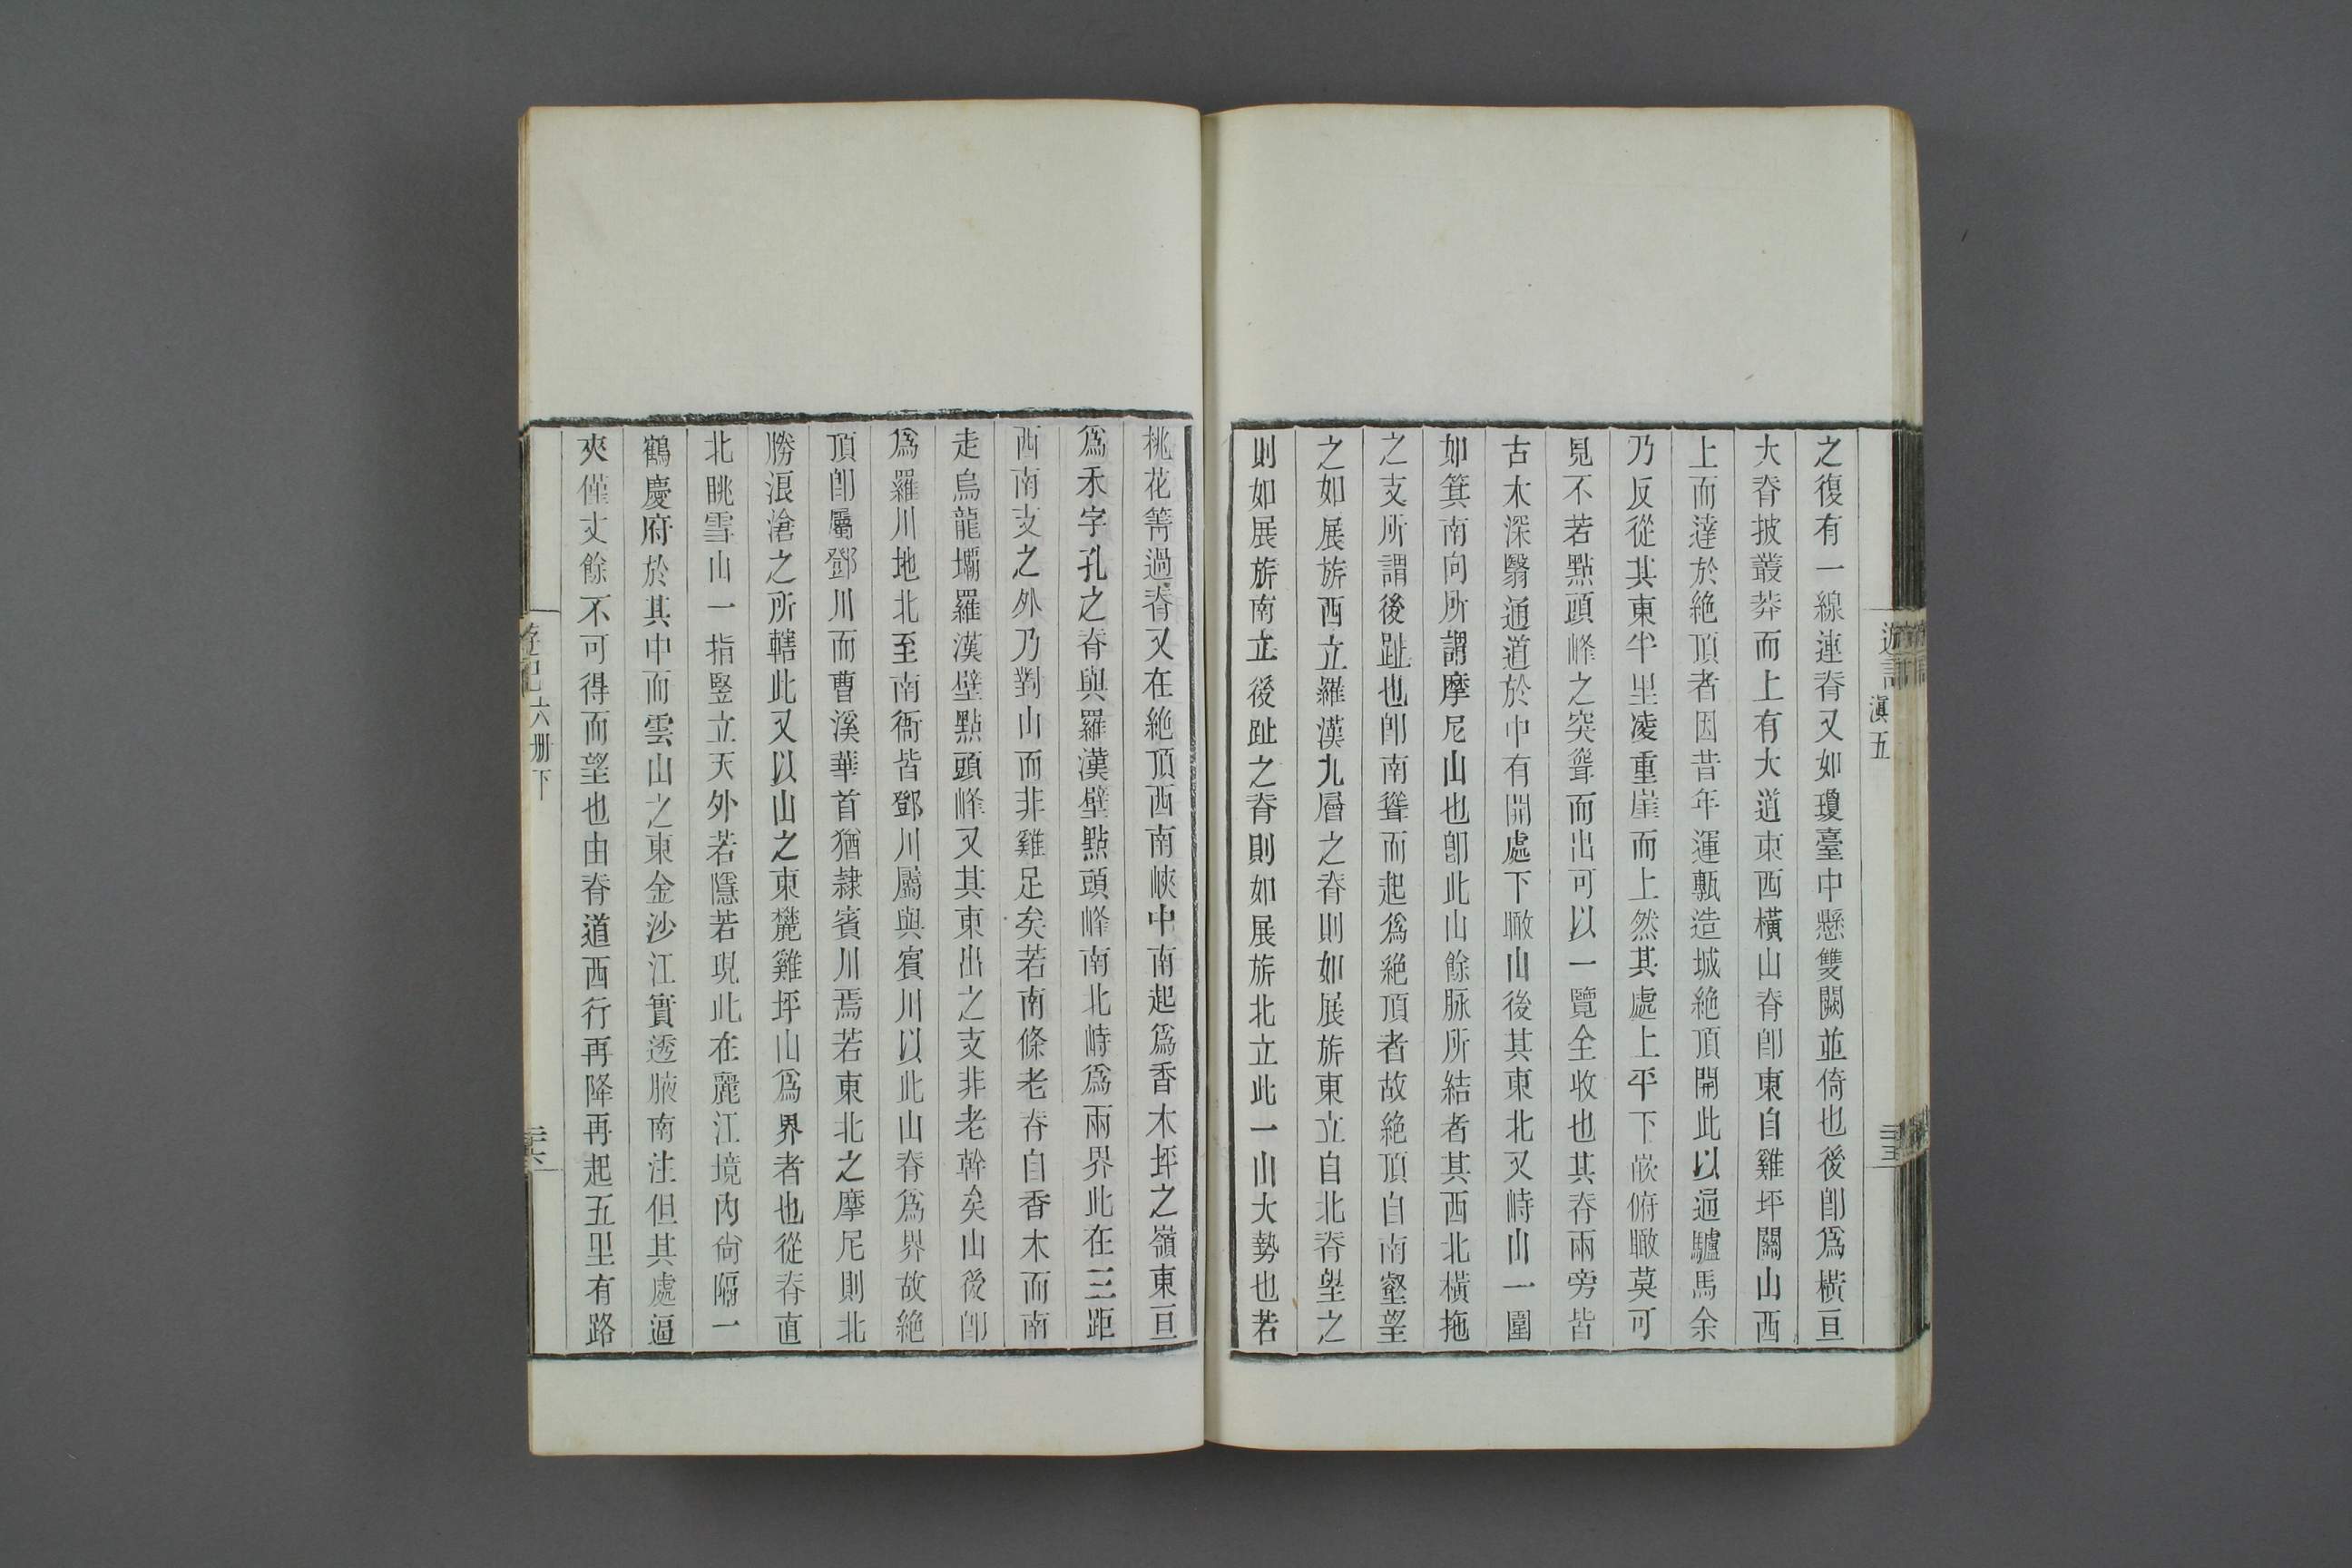 遊記
滇五
三五
之復有一線連脊又如瓊臺中懸雙闕並倚也後卽爲橫亘
大脊披叢莽而上有大道東西橫山脊卽東自雞坪關山西
上而達於絶頂者因昔年運甎造城絶頂開此以通驢馬余
乃反從其東半里凌重崖而上然其處上平下嵌俯瞰莫可
見不若點頭峰之突聳而出可以一覽全收也其脊兩旁皆
古木深翳通道於中有開處下瞰山後其東北又峙山一圍
如箕南向所謂摩尼山也卽此山餘脈所結者其西北橫拖
之支所謂後趾也卽南聳而起爲絶頂者故絶頂自南壑望
之如展旂西立羅漢九層之脊則如展旂東立自北脊望之
則如展旂南立後趾之脊則如展旂北立此一山大勢也若
桃花箐過脊又在絶頂西南峽中南起爲香木坪之嶺東亘
爲禾字孔之脊與羅漢壁點頭峰南北峙爲兩界此在三距
西南支之外乃對山而非雞足矣若南條老脊自香木而南
走烏龍壩羅漢壁點頭峰又其東出之支非老幹矣山後卽
爲羅川地北至南衙皆鄧川屬與賓川以此山脊爲界故絶
頂卽屬鄧川而曹溪華首猶隸賓川焉若東北之摩尼則北
勝浪滄之所轄此又以山之東麓雞坪山爲界者也從脊直
北眺雪山一指豎立天外若隱若現此在麗江境內尙隔一
鶴慶府於其中而雲山之東金沙江實透腋南注但其處逼
夾僅丈餘不可得而望也由脊道西行再降再起五里有路
遊記
六册下
三六